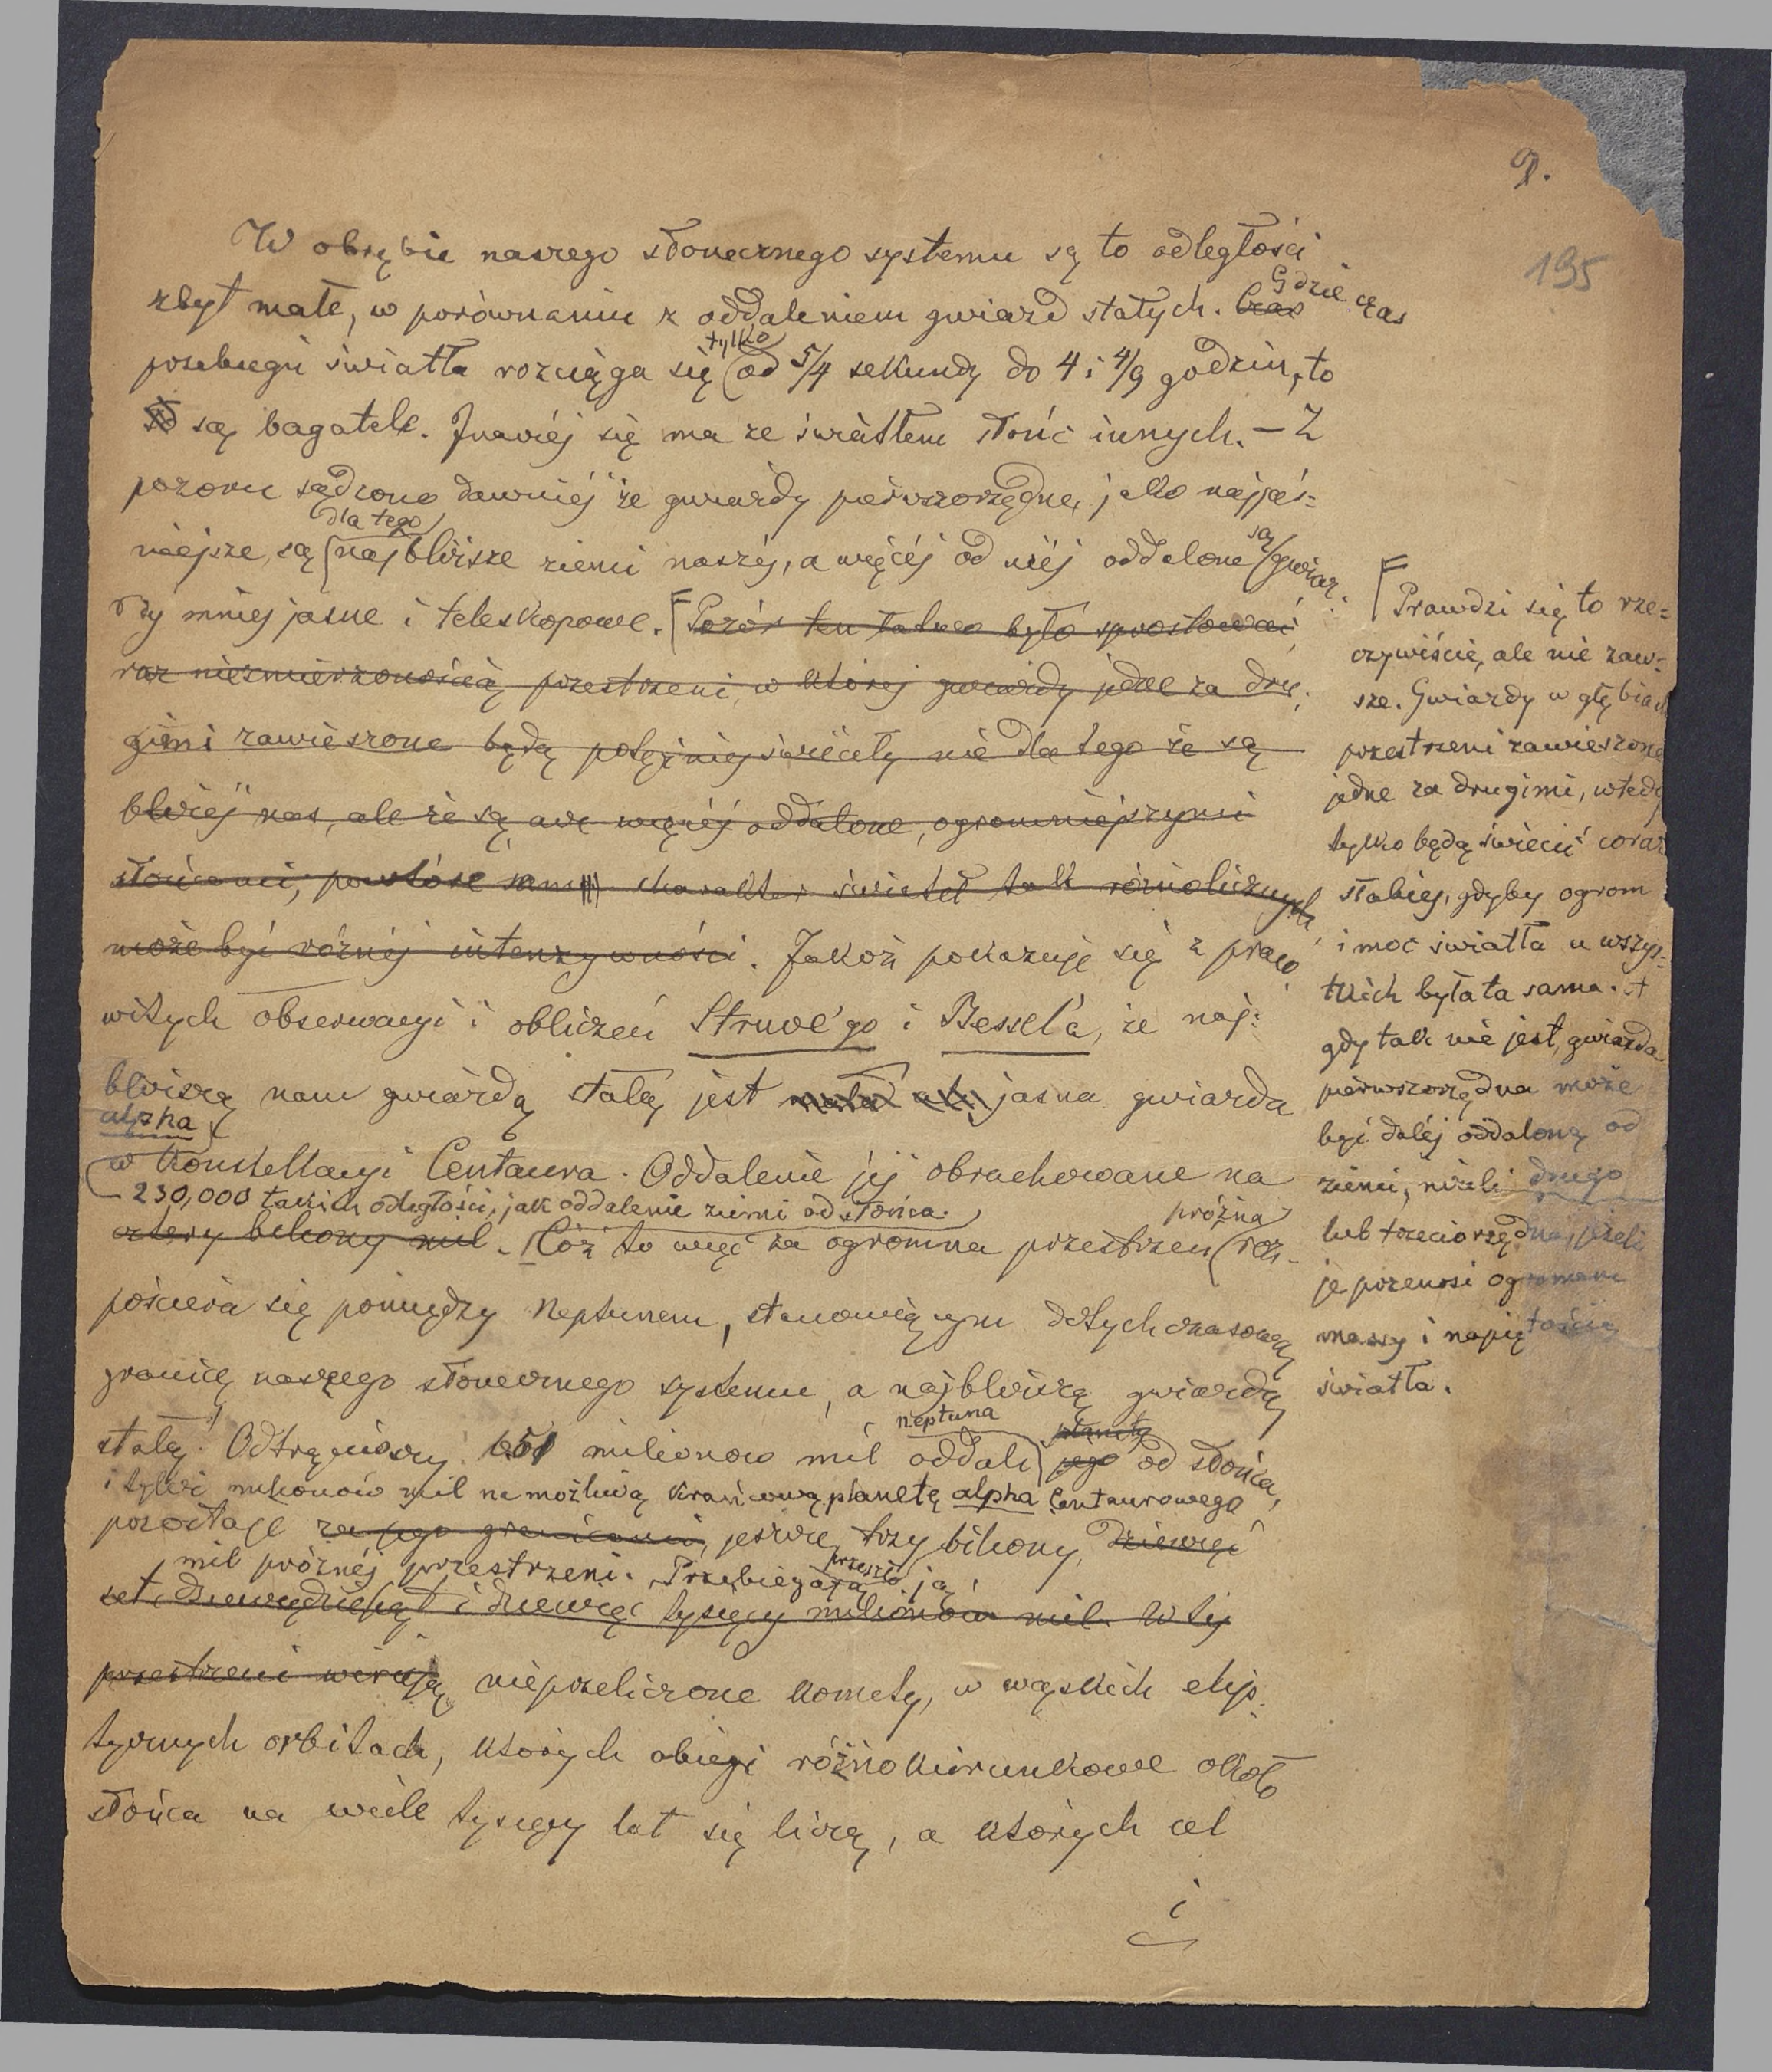 9.
195
W obrębie naszego słonecznego systemu są to odległości
zbyt małe, w porównaniu z oddaleniem gwiazd stałych. Czas Gdzie czas
przebiegu światła rozciąga się tylko od 5/4 sekundy do 4 i 4/9 godzin, to
są bagatele. Inaczéj się ma ze światłem słońc innych. — Z
pozoru sądzono dawniéj że gwiazdy pierwszorzędne, jako najjaś=
niejsze, są dla tego najbliższe ziemi naszéj, a więcéj od niéj oddalone są gwiaz=
dy mniej jasne i teleskopowe. Pozór ten łatwo było sprostować
raz niezmierzonością przestrzeni, w której gwiazdy jedne za dru=
gimi zawieszone będą potężniej świeciły nie dla tego że są
bliżéj nas, ale że są, acz więcéj oddalone, ogromniejszymi
słońcami, powtóre charakter świateł tak różnolicznych
może być różnéj intenzywności. Jakoż pokazuje się z praco=
witych obserwacyi i obliczeń Struve'go i Bessel'a, że naj=
bliższą nam gwiazdą stałą jest jasna gwiazda
alpha
w konstellacyi Centaura. Oddalenie jéj obrachowane na
230,000 takich odległości, jak oddalenie ziemi od słońca.
cztery biliony mil. Cóż to więc za ogromna przestrzeń próżna roz=
pościera się pomiędzy Neptunem, stanowiącym dotychczasową
granicę naszego słonecznego systemu, a najbliższą gwiazdą
stałą! Odtrąciwszy milionów mil oddali Neptuna planety jego od słońca,
i tyleż milionów mil na możliwą krańcową planetę alpha Centaurowego
pozostaje za jego granicami, jeszcze trzy biliony, dziewięć
mil próżnéj przestrzeni. Przebiegają przeszło ją
set, dziewięćdziesiąt i dziewięć tysięcy milionów mil. W téj
przestrzeni wirują nieprzeliczone komety, w wązkich elip=
tycznych orbitach, których obiegi różnokierunkowe około
słońca na wiele tysięcy lat się liczą, a których cel
i
Prawdzi się to rze=
czywiście, ale nie zaw=
sze. Gwiazdy w głębiach
przestrzeni zawieszone
jedne za drugimi, wtedy
tylko będą świecić coraz
słabiej, gdyby ogrom
i moc światła u wszys=
tkich była ta sama. A
gdy tak nie jest, gwiazda
pierwszorzędna może
być daléj oddaloną od
ziemi, niżeli drugo
lub trzeciorzędna, jeżeli
je przenosi ogromem
massy i napiętością
światła.